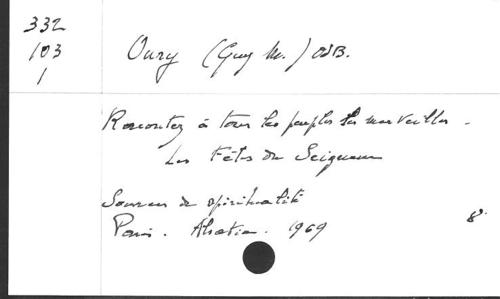 332
103
1
Oury (Guy M.) OSB.
Racontez à tous les peuples ses merveilles.
Les Fêtes du Seigneur
Sources de spiritualité
Paris. Alsatia. 1969 8°